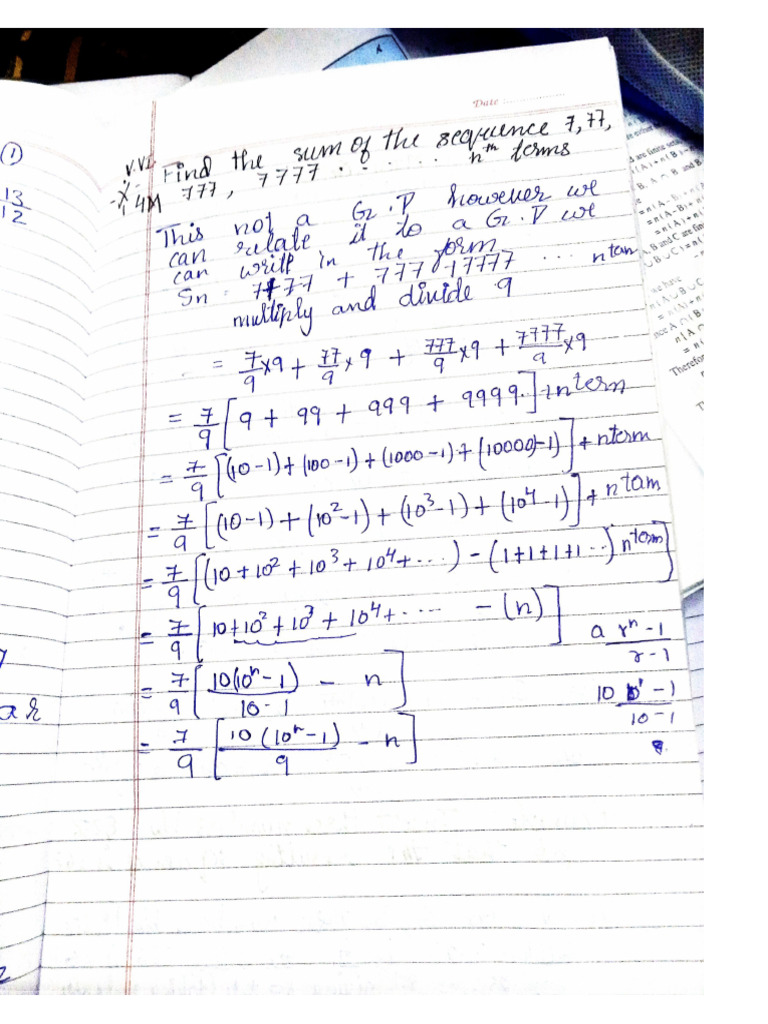 Date
①
13
12
V.V.I Find the sum of the sequence 7,77,
4M 777, 7777 ...... nth terms
This not a G.P however we
can relate it to a G.P we
can write in the form
Sn = 7+77 + 777 + 7777 ... n
multiply and divide 9
= 7/9 x9 + 77/9 x 9 + 777/9 x9 + 7777/9 x9
= 7/9 [9 + 99 + 999 + 9999.] + nterm
= 7/9 [(10-1) + (100-1) + (1000-1) + (10000-1)] + nterm
= 7/9 [(10-1) + (10²-1) + (10³-1) + (10⁴-1)] + n
= 7/9 [(10+10²+10³+10⁴+...) - (1+1+1+1...) n term]
= 7/9 [10+10²+10³+10⁴+.... - (n)]
a rⁿ-1
r-1
= 7/9 [10(10ⁿ-1)/10-1 - n]
10 -1
10-1
= 7/9 [10(10ⁿ-1)/9 - n]